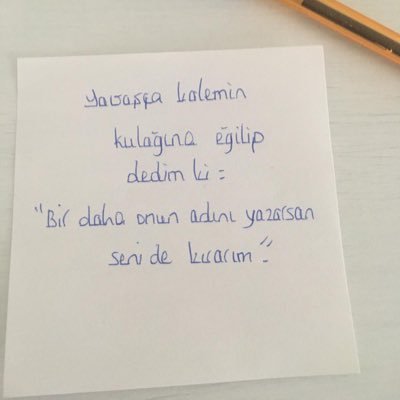 Yavaşça kalemin
kulağına eğilip
dedim ki :
"Bir daha onun adını yazarsan
seni de kırarım."